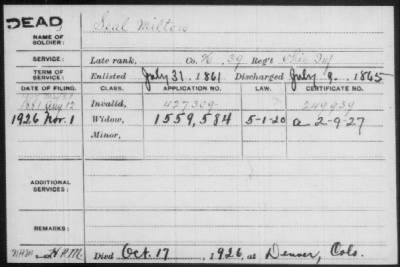 DEAD
NAME OF SOLDIER: Seal Milton
SERVICE: Late rank, Co. K, 39 Reg't Ohio Inf
TERM OF SERVICE: Enlisted July 31, 1861, Discharged July 9, 1865
DATE OF FILING. CLASS. APPLICATION NO. LAW. CERTIFICATE NO.
1881 Aug 12 Invalid, 427309 249939
1926 Nov. 1 Widow, 1559,584 5-1-20 a 2-9-27
Minor,
ADDITIONAL SERVICES:
REMARKS:
Died Oct. 17, 1926, at Denver, Colo.